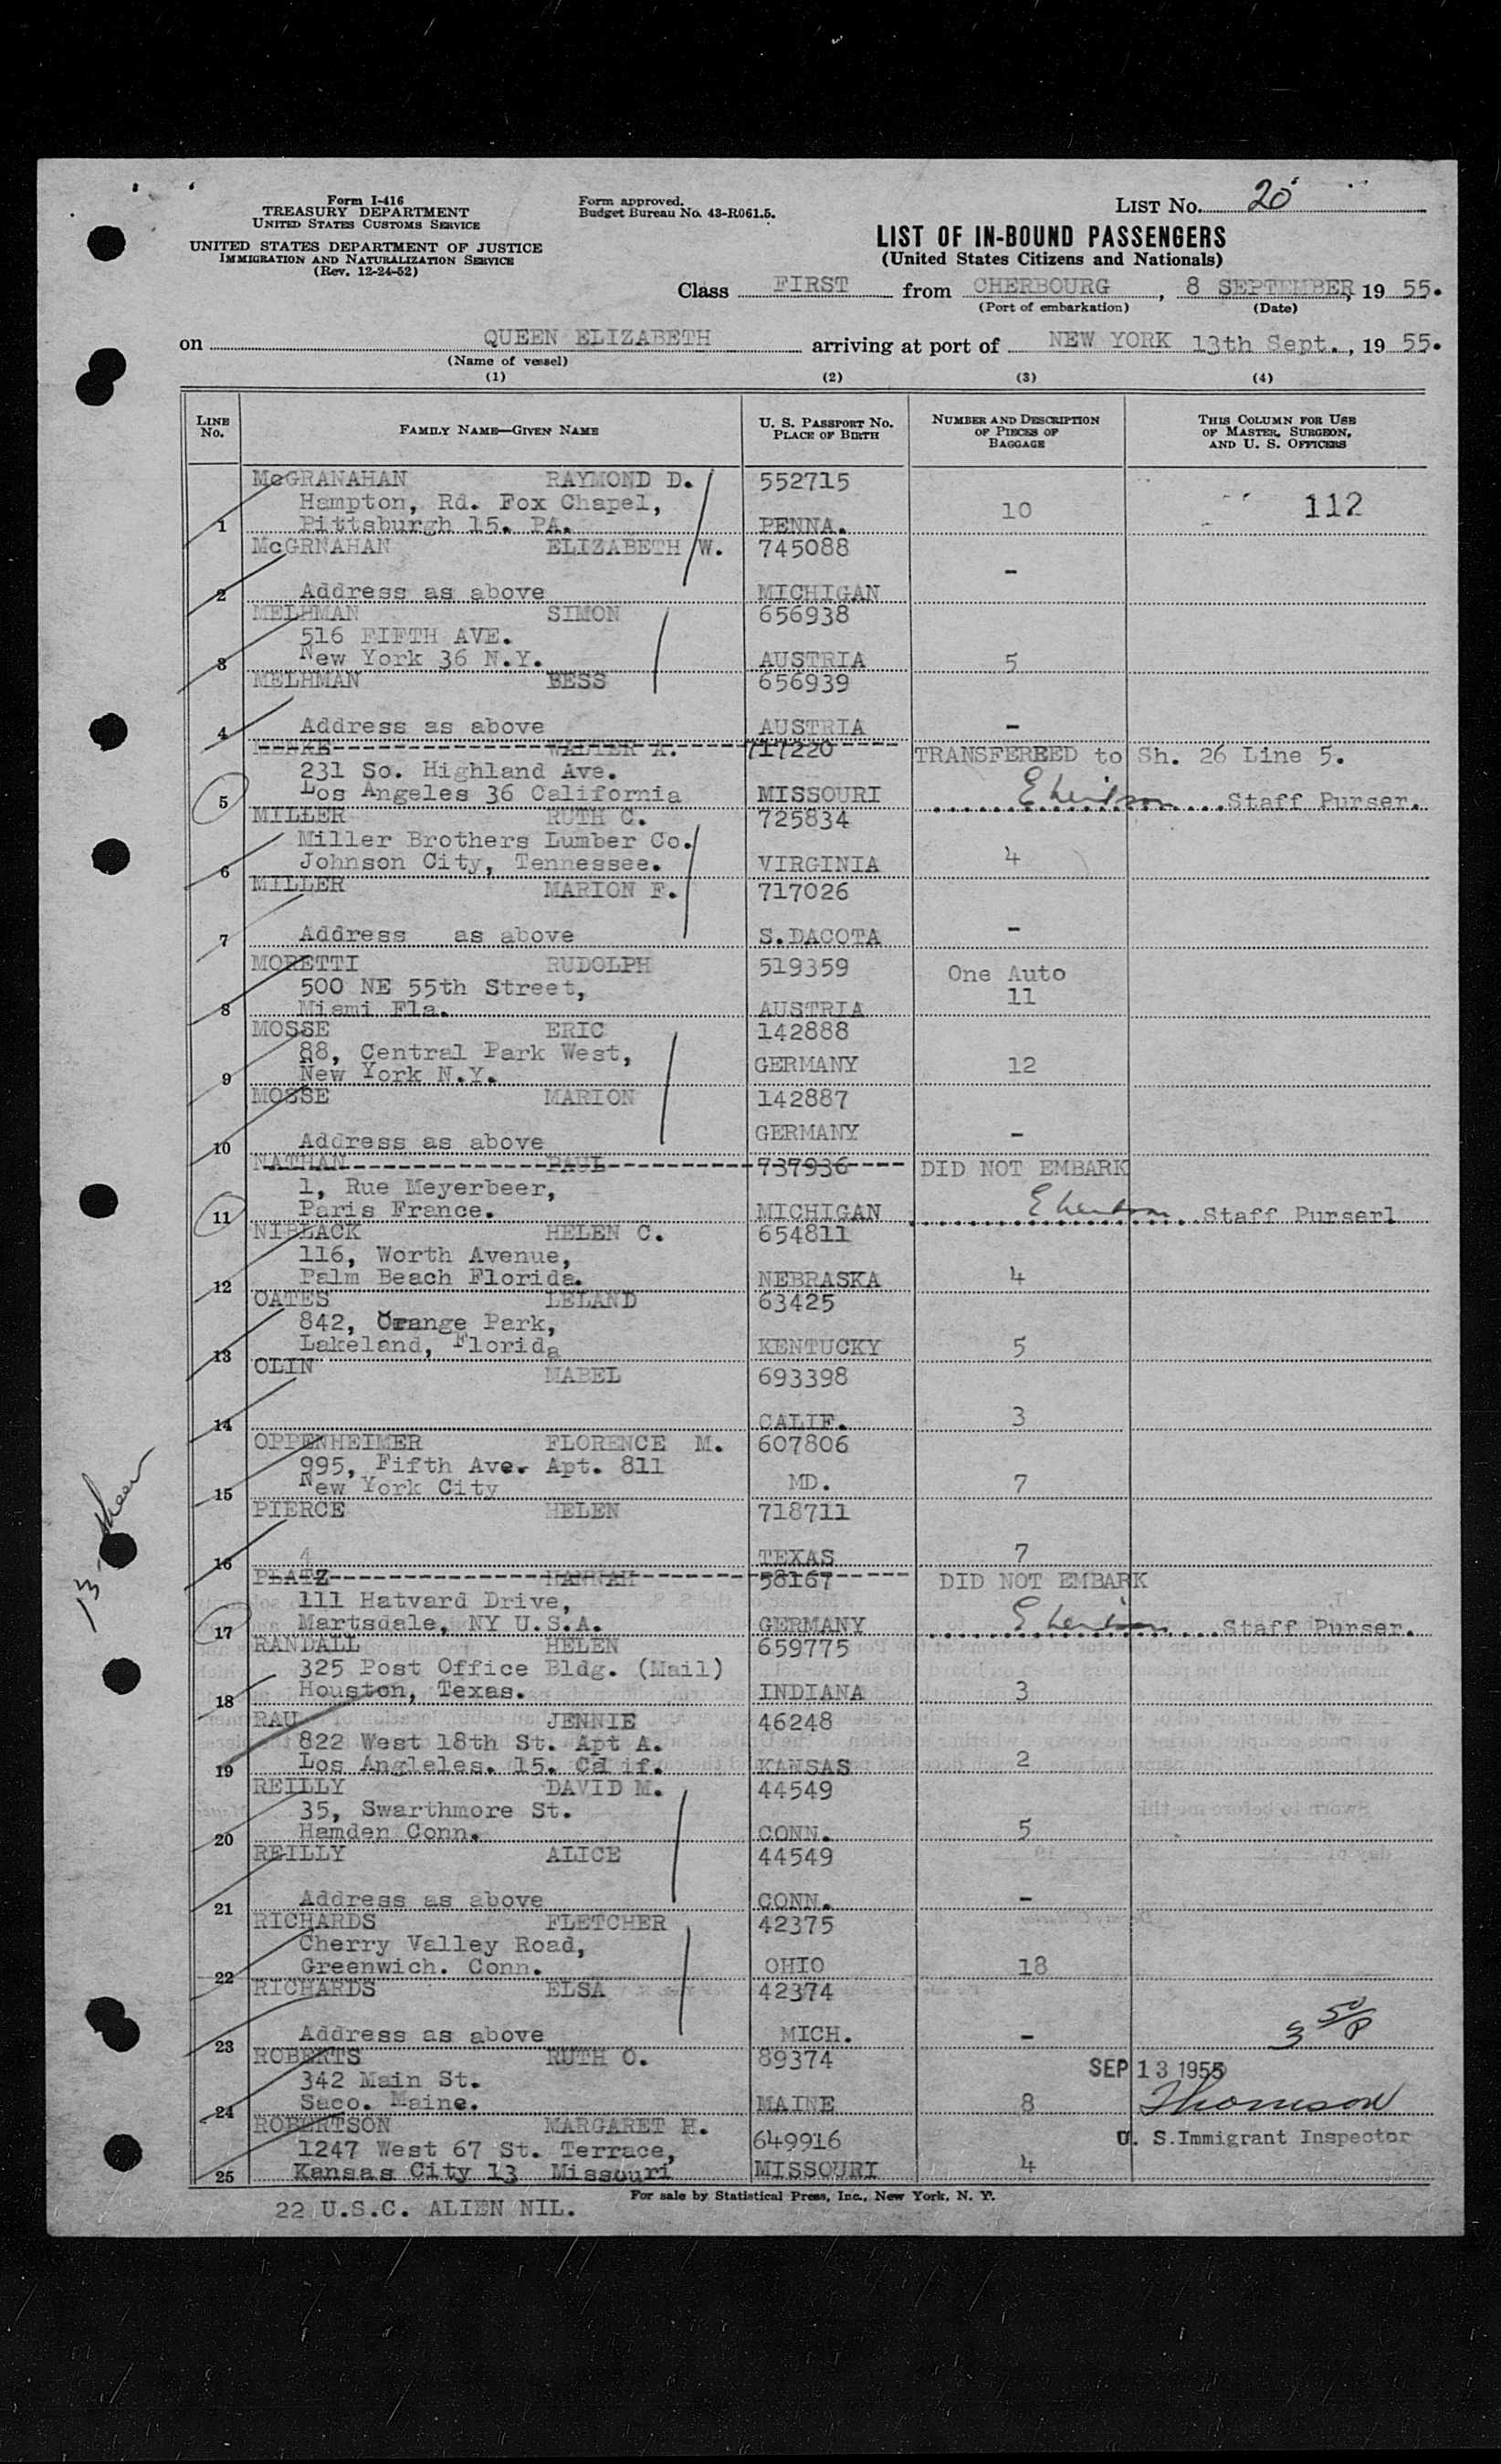 Form I-416
TREASURY DEPARTMENT
UNITED STATES CUSTOMS SERVICE
UNITED STATES DEPARTMENT OF JUSTICE
IMMIGRATION AND NATURALIZATION SERVICE
(Rev. 12-24-52)
Form approved.
Budget Bureau No. 43-R061.5.
LIST No. 20
LIST OF IN-BOUND PASSENGERS
(United States Citizens and Nationals)
Class FIRST from CHERBOURG, 8 SEPTEMBER, 19 55.
(Port of embarkation) (Date)
on QUEEN ELIZABETH arriving at port of NEW YORK 13th Sept., 19 55.
(Name of vessel)
(1) (2) (3) (4)
LINE No. FAMILY NAME—GIVEN NAME U. S. PASSPORT No. PLACE OF BIRTH NUMBER AND DESCRIPTION OF PIECES OF BAGGAGE THIS COLUMN FOR USE OF MASTER, SURGEON, AND U. S. OFFICERS
McGRANAHAN RAYMOND D. 552715
Hampton, Rd. Fox Chapel, 10 112
1 Pittsburgh 15. PA. PENNA.
McGRNAHAN ELIZABETH W. 745088
-
2 Address as above MICHIGAN
MELHMAN SIMON 656938
516 FIFTH AVE.
3 New York 36 N.Y. AUSTRIA 5
MELHMAN BESS 656939
4 Address as above AUSTRIA -
WALTER A. 717220 TRANSFEREED to Sh. 26 Line 5.
231 So. Highland Ave.
5 Los Angeles 36 California MISSOURI Staff Purser.
MILLER RUTH C. 725834
Miller Brothers Lumber Co.
6 Johnson City, Tennessee. VIRGINIA 4
MILLER MARION F. 717026
7 Address as above S.DACOTA -
MORETTI RUDOLPH 519359 One Auto
500 NE 55th Street, 11
8 Miami Fla. AUSTRIA
MOSSE ERIC 142888
88, Central Park West, GERMANY 12
9 New York N.Y.
MOSSE MARION 142887
10 Address as above GERMANY -
NATHAN PAUL 737936 DID NOT EMBARK
1, Rue Meyerbeer,
11 Paris France. MICHIGAN Staff Purserl
NIBLACK HELEN C. 654811
116, Worth Avenue,
12 Palm Beach Florida. NEBRASKA 4
OATES LELAND 63425
842, Orange Park,
13 Lakeland, Florida KENTUCKY 5
OLIN MABEL 693398
14 CALIF. 3
OPPENHEIMER FLORENCE M. 607806
995, Fifth Ave. Apt. 811
15 New York City MD. 7
PIERCE HELEN 718711
16 TEXAS 7
PLATZ HANNAH 58167 DID NOT EMBARK
111 Hatvard Drive,
17 Martsdale, NY U.S.A. GERMANY Staff Purser.
RANDALL HELEN 659775
325 Post Office Bldg. (Mail)
18 Houston, Texas. INDIANA 3
RAU JENNIE 46248
822 West 18th St. Apt A.
19 Los Angleles. 15. Calif. KANSAS 2
REILLY DAVID M. 44549
35, Swarthmore St.
20 Hamden Conn. CONN. 5
REILLY ALICE 44549
21 Address as above CONN. -
RICHARDS FLETCHER 42375
Cherry Valley Road,
22 Greenwich. Conn. OHIO 18
RICHARDS ELSA 42374
23 Address as above MICH. -
ROBERTS RUTH O. 89374 SEP 13 1955
342 Main St.
24 Saco. Maine. MAINE 8 Thomson
ROBERTSON MARGARET H. 649916 U. S. Immigrant Inspector
1247 West 67 St. Terrace,
25 Kansas City 13 Missouri MISSOURI 4
For sale by Statistical Press, Inc., New York, N. Y.
22 U.S.C. ALIEN NIL.